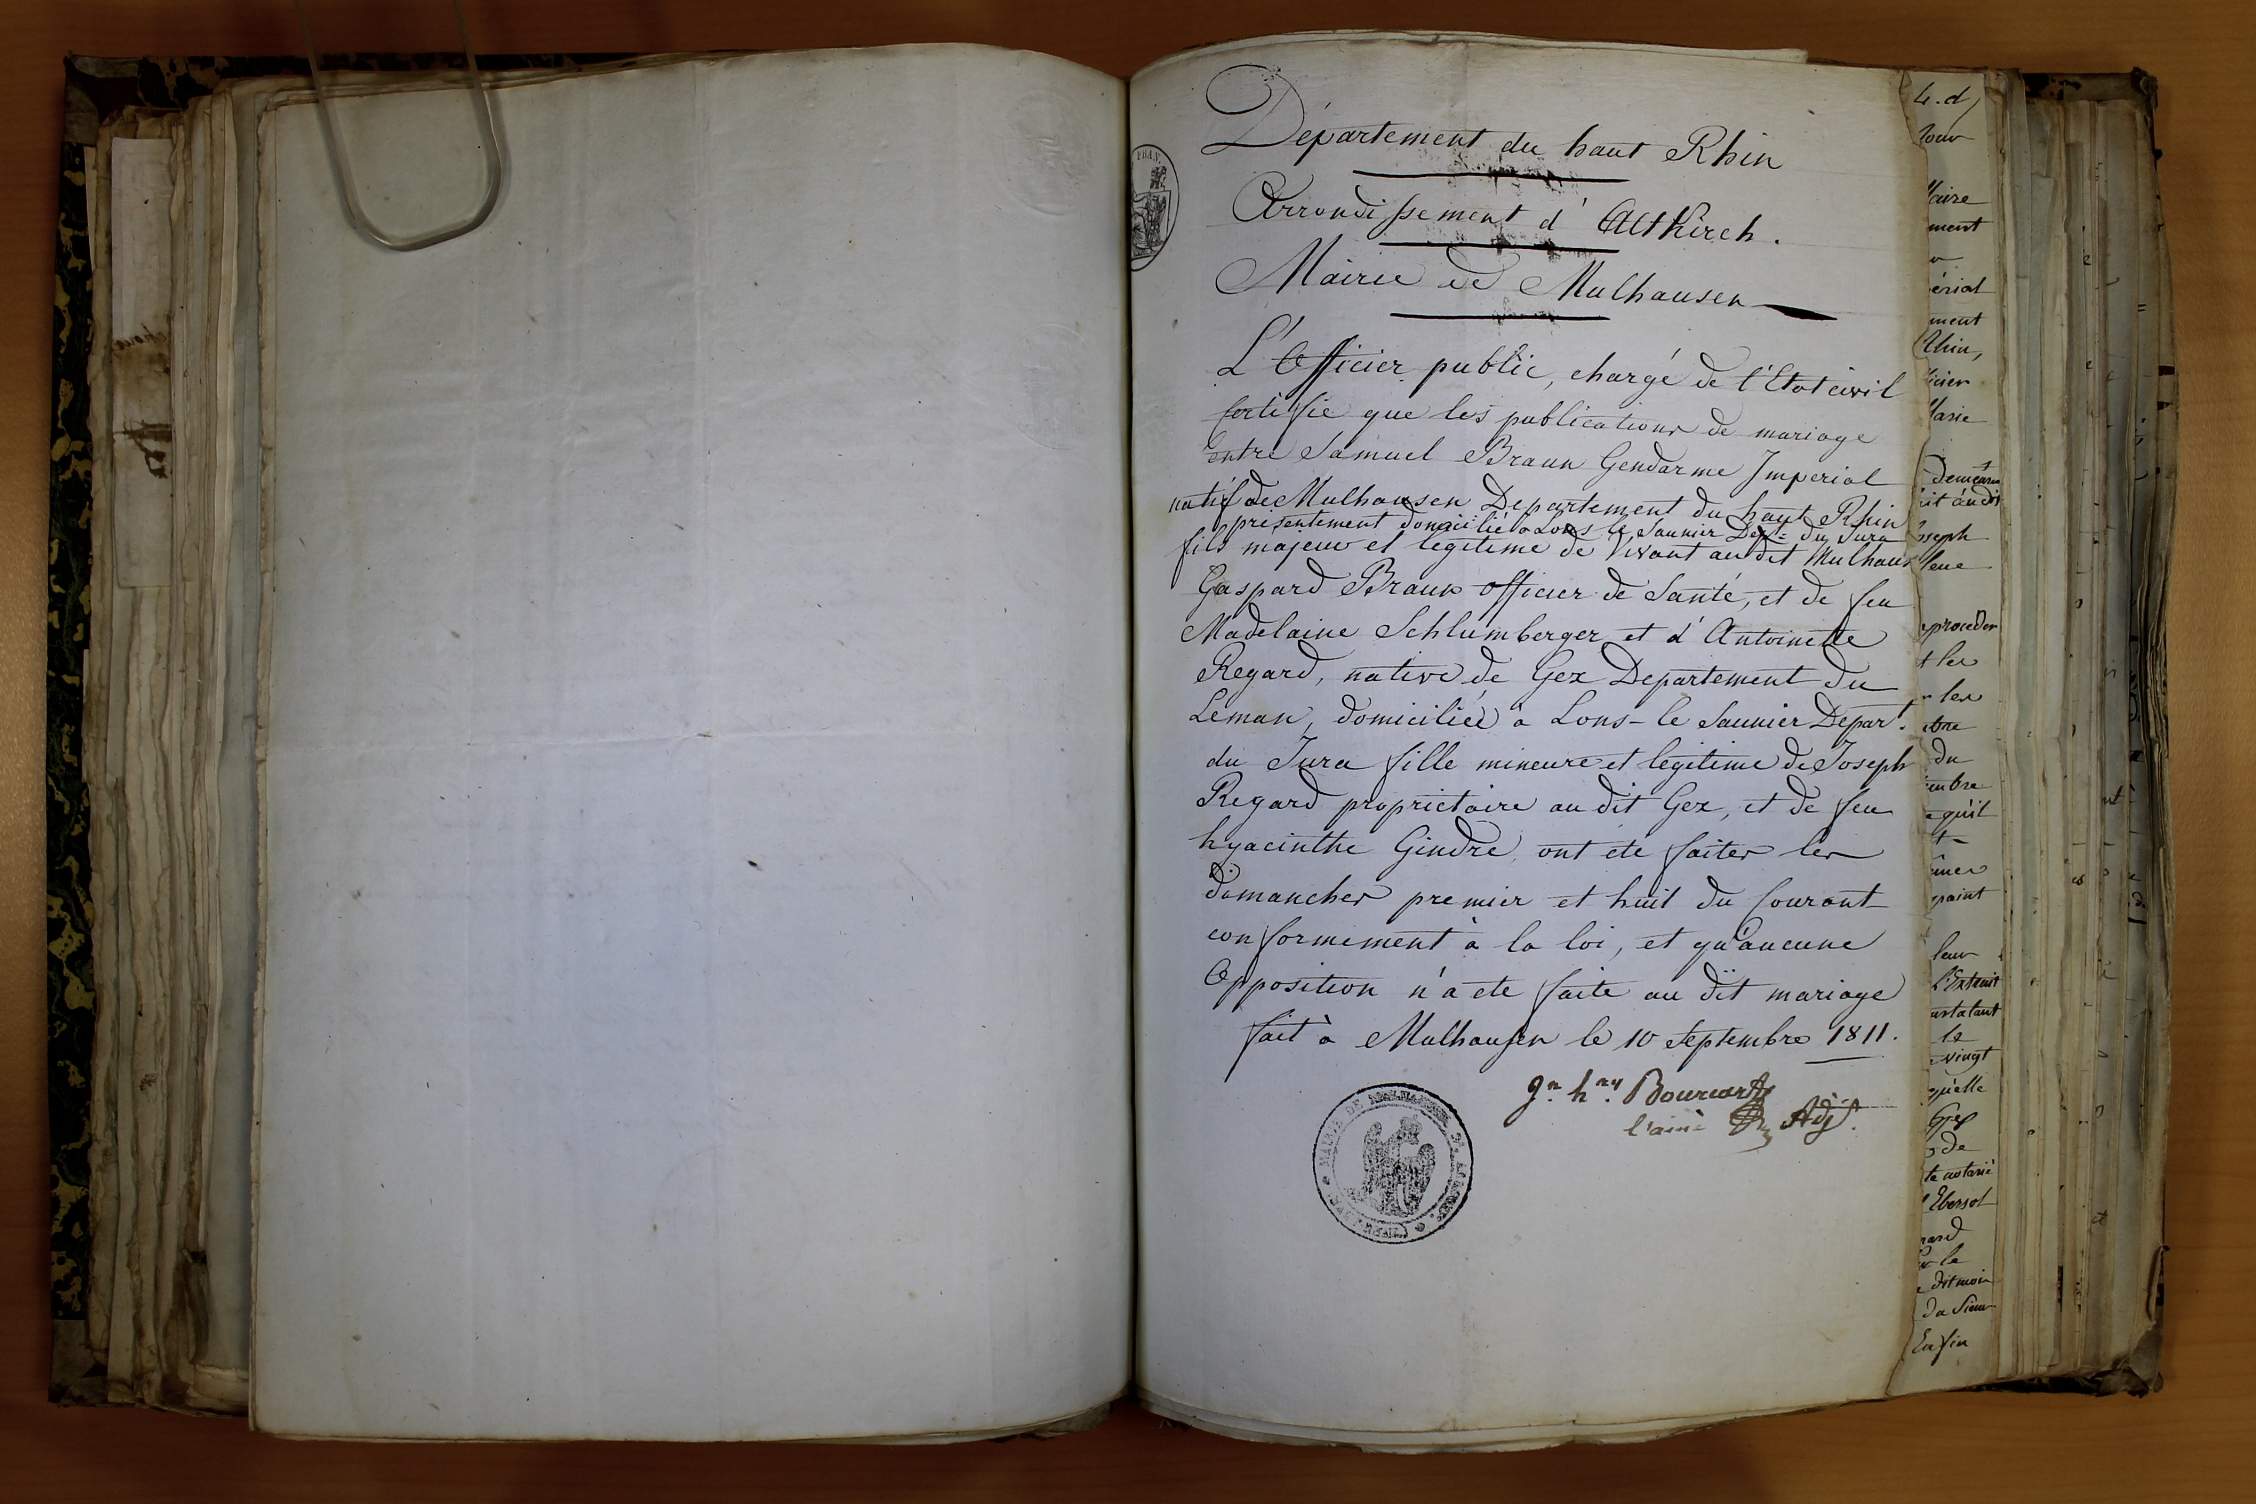 Département du haut Rhin
Arrondissement d'Altkirch.
Mairie de Mulhausen
L'Officier public, chargé de l'Etat civil
Certifie que les publications de mariage
entre Samuel Braun Gendarme Imperial
natif de Mulhausen Departement du haut Rhin
présentement domicilié à Lons le Saunier Dept. du Jura
fils majeur et legitime de vivant au dit Mulhaus
Gaspard Braun officier de Santé, et de feu
Madelaine Schlumberger et d'Antoinette
Regard, native de Gex Departement du
Léman, domiciliée à Lons-le Saunier Depart.
du Jura fille mineure et legitime de Joseph
Regard proprietaire au dit Gex, et de feu
hyacinthe Gindre, ont été faites les
dimanches premier et huit du Courant
conformement à la loi, et qu'aucune
Opposition n'a ete faite au dit mariage
fait à Mulhausen le 10 Septembre 1811.
Jn. hry. Bourcart
l'ainé Adjt.
MAIRIE DE
FRAN.
4. d
ment
érial
ment
Rhin,
icier
Marie
oseph
proceder
t les
r les
du
embre
qu'il
point
leur
l'Extrait
le
vingt
quelle
Gex
de
te notarié
Ebersol
le
dit mois
Enfin